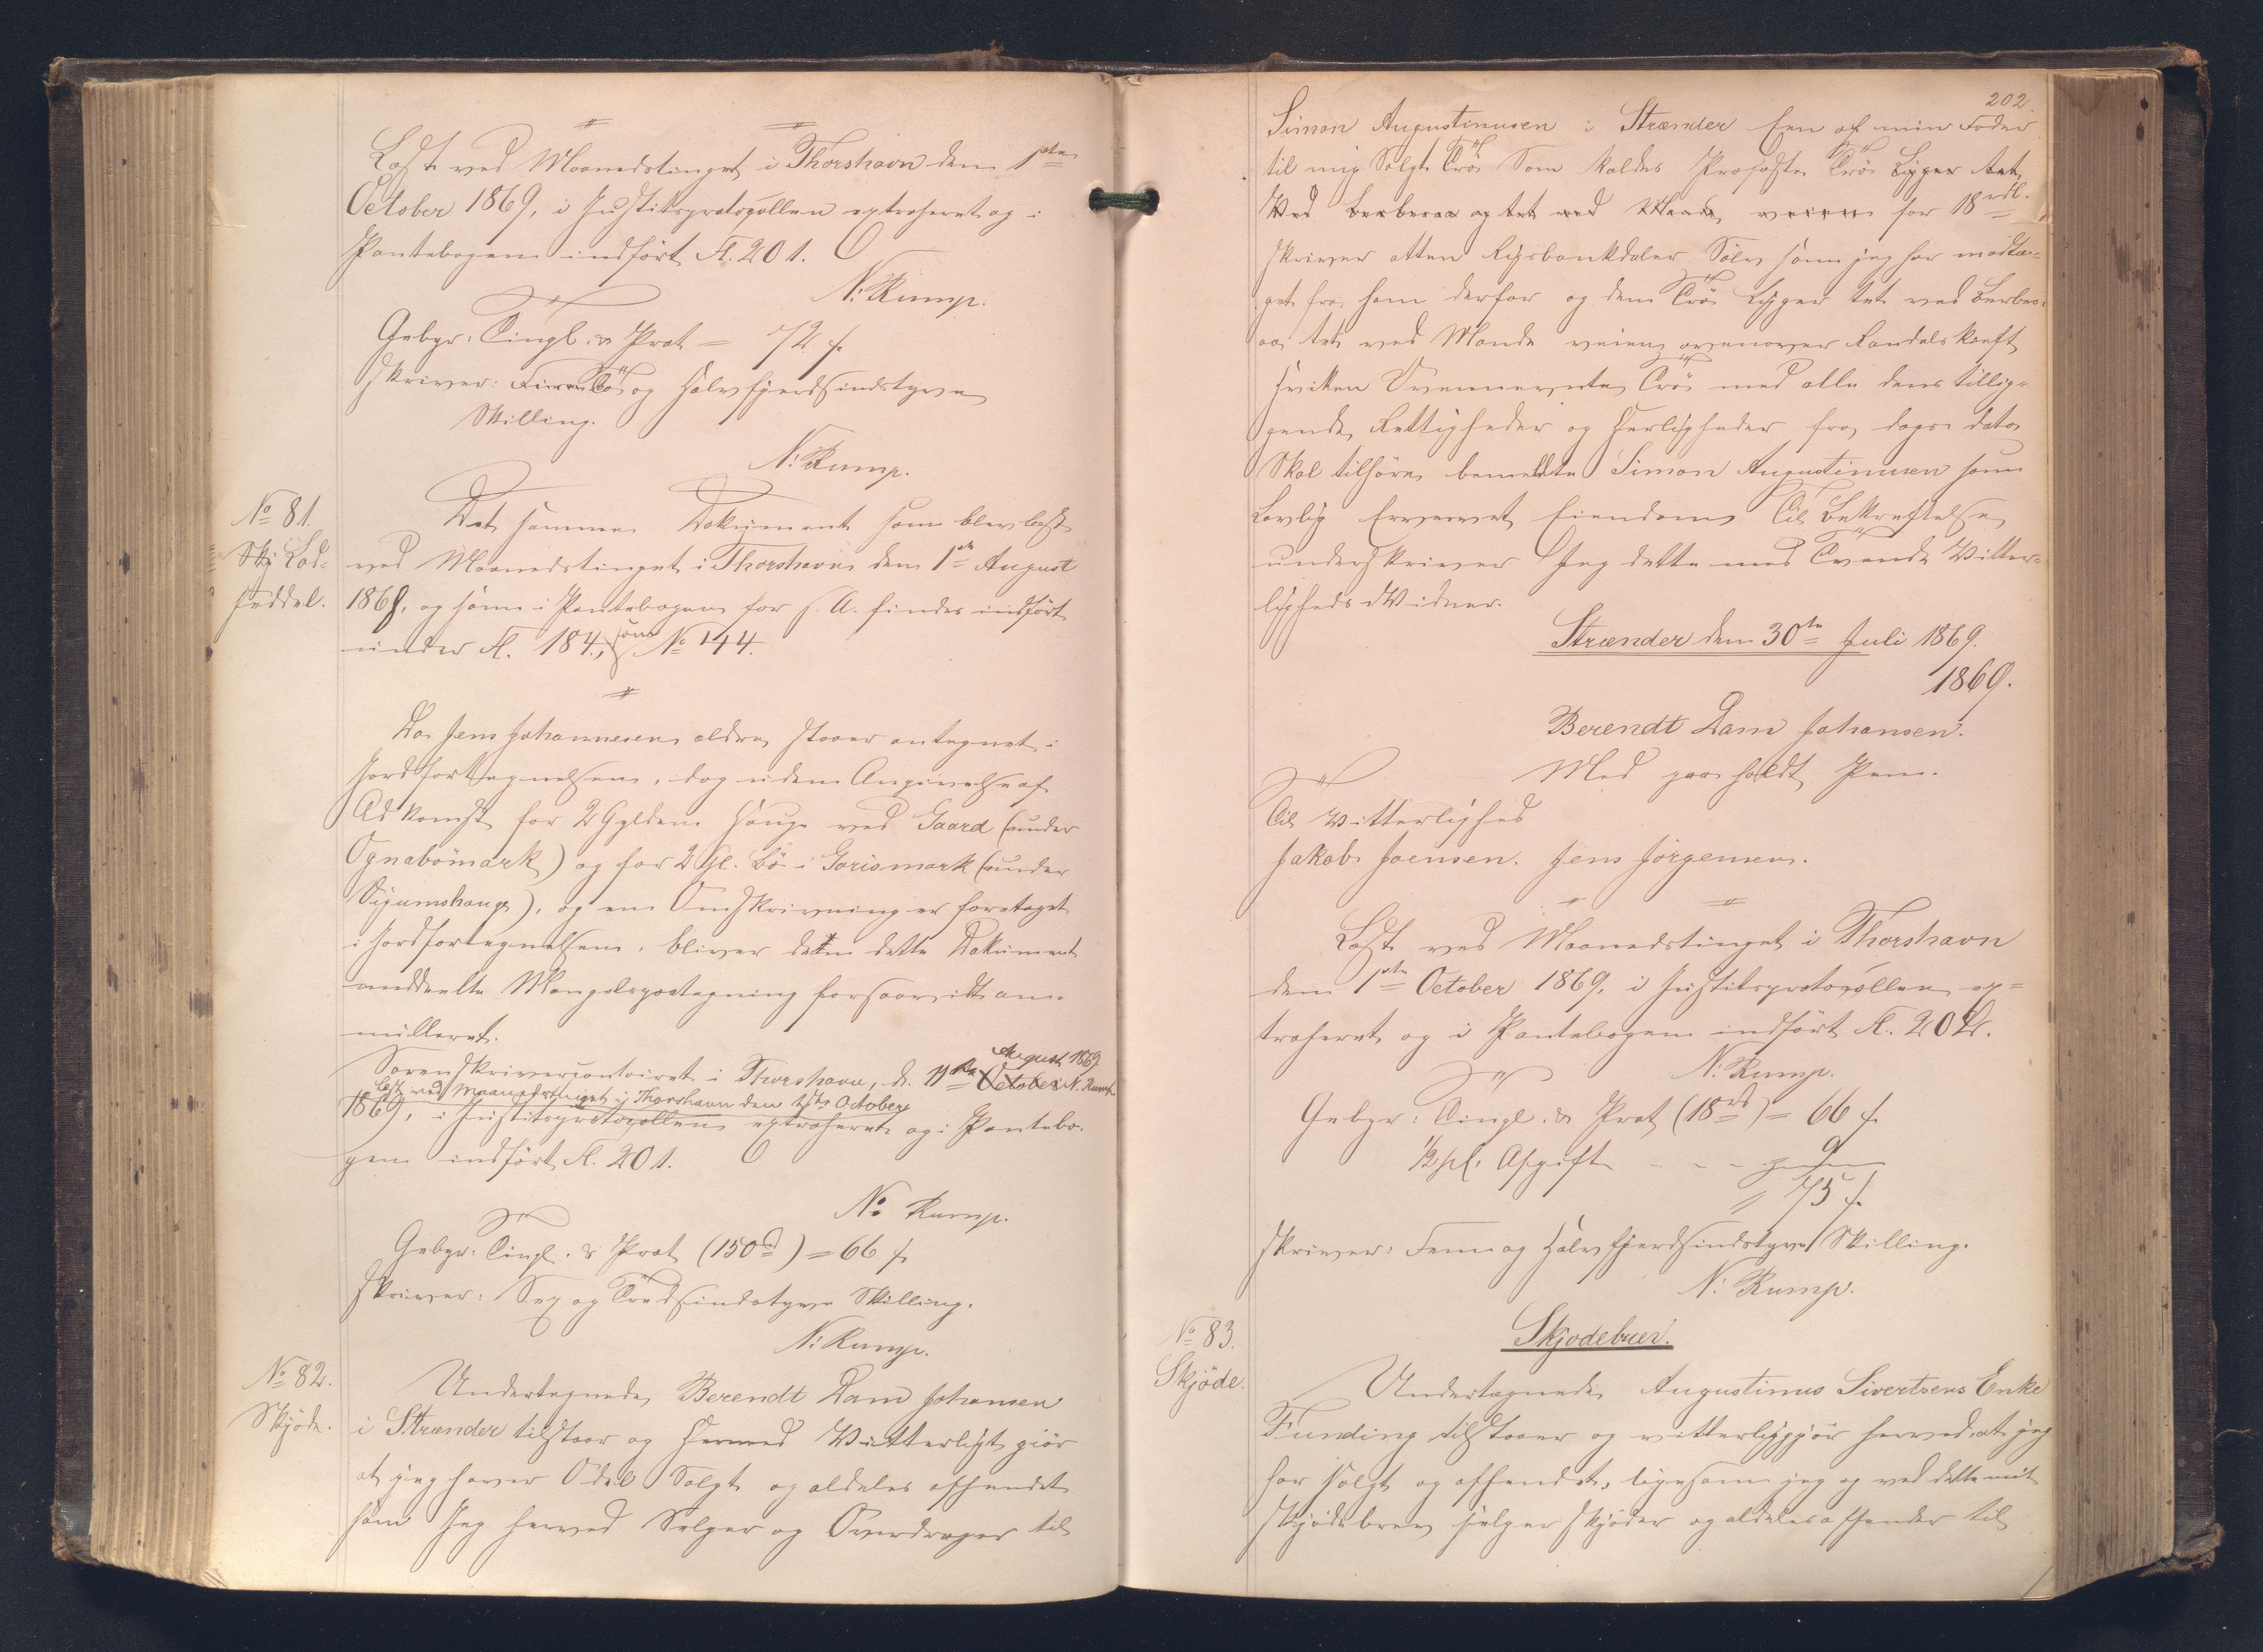 Læst ved Maanedstinget i Thorshavn den 1ste
October 1869, i Justitsprotocollen extraheret og i
Pantebogen indført Fl. 201.
N. Rump.
Gebyr: Tingl. & Prot = 72 s.
skriver: og Halvfjerdsindstyve
Skilling.
N. Rump.
No 81.
Skj Lod-
seddel.
Det samme Dokument som blev læst
ved Maanedstinget i Thorshavn den 1ste August
1868, og som i Pantebogen for s. A. findes indført
under Fl. 184, som No 144.
Da Jens Johannesen ældre staaer antegnet i
Jordfortegnelsen, dog uden Angivelse af
Adkomst for 2 Gylden Hauge ved Gaard (under
Ognabömark) og for 2 Gl. Bö i Gorismark (under
Sigumshauge), og en Omskrivning er foretaget
i Jordfortegnelsen, bliver den dette Dokument
meddeelte Mangelspaategning forsaavidt an-
nulleret.
Sorenskrivercontoiret i Thorshavn, d. 11te October August 1869 N. Rump
Læst ved Maanedstinget i Thorshavn den 1ste October
1869, i Justitsprotocollen extraheret og i Pantebo-
gen indført Fl. 201.
N. Rump.
Gebyr: Tingl. & Prot (150rd) = 66 s.
skriver: Sex og Tredsindstyve Skilling.
N. Rump.
No 82.
Skjöde.
Undertegnede Berendt Dam Johansen
i Strænder tilstaar og Hermed Vitterligt giör
at jeg haver Odel Solgt og aldeles afhændet
som Jeg herved Selger og Overdrager til
202.
Simon Augustinusen i Strænder Een af min Fader
til mig Solgt Trö Som kaldes Trö Ligger tet
Ved og tet ved for 18 rdl.
skriver atten Rigsbankdaler Sølv som jeg har modta-
get fra ham derfor og den Trö Ligger tet ved
og tet ved ovenover
hvilken Ovennevnte Trö med alle dens tillig-
gende Rettigheder og Herligheder fra dags dato
Skal tilhöre bemeldte Simon Augustinusen som
Lovlig Ervervet Eiendom Til Bekræftelse
underskriver Jeg dette med Tvende Vitter-
ligheds Vidner.
Strænder den 30te Juli 1869.
1869.
Berendt Dam Johansen.
Med paaholdt Pen.
Til Vitterlighed
Jakob Joensen. Jens Jörgensen.
Læst ved Maanedstinget i Thorshavn
den 1ste October 1869, i Justitsprotocollen ex-
traheret og i Pantebogen indført Fl. 202.
N. Rump.
Gebyr: Tingl. & Prot (18rd) = 66 s.
½ pCt. Afgift - - - 9
= 75 s.
skriver: Fem og Halvfjerdsindstyve Skilling.
N. Rump.
No 83.
Skjöde.
Skjodebrev.
Undertegnede Augustinus Sivertsens Enke
Funding tilstaaer og vitterliggjör herved at jeg
har solgt og afhændet, ligesom jeg og ved dette mit
Skjödebrev sælger skjöder og aldeles afhænder til